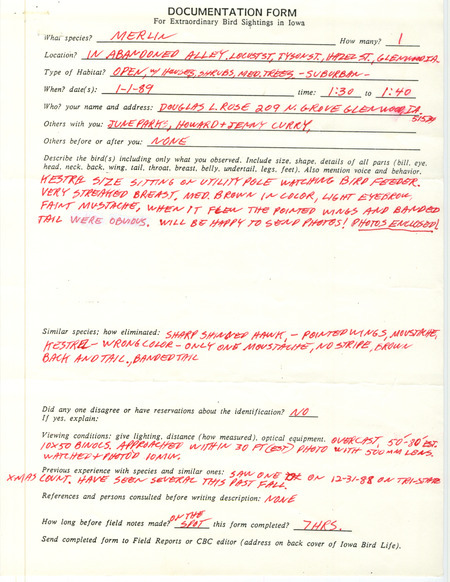 DOCUMENTATION FORM
For Extraordinary Bird Sightings in Iowa
What species? MERLIN How many? 1
Location? IN ABANDONED ALLEY, LOCUST ST, TYSON ST, HAZEL ST, GLENWOOD IA.
Type of Habitat? OPEN, W/ HOUSES, SHRUBS, MED. TREES - SUBURBAN -
When? date(s): 1-1-89 time: 1:30 to 1:40
Who? your name and address: DOUGLAS L. ROSE 209 N. GROVE GLENWOOD, IA.
51534
Others with you: JUNE PARKS, HOWARD + JENNY CURRY,
Others before or after you: NONE
Describe the bird(s) including only what you observed. Include size, shape, details of all parts (bill, eye,
head, neck, back, wing, tail, throat, breast, belly, undertail, legs, feet). Also mention voice and behavior.
KESTREL SIZE SITTING ON UTILITY POLE WATCHING BIRD FEEDER.
VERY STREAKED BREAST, MED. BROWN IN COLOR, LIGHT EYEBROW,
FAINT MUSTACHE, WHEN IT FLEW THE POINTED WINGS AND BANDED
TAIL WERE OBVIOUS. WILL BE HAPPY TO SEND PHOTOS! PHOTOS ENCLOSED!
Similar species; how eliminated: SHARP SHINNED HAWK, - POINTED WINGS, MOUSTACHE,
KESTREL - WRONG COLOR - ONLY ONE MOUSTACHE, NO STRIPE, BROWN
BACK AND TAIL, BANDED TAIL
Did any one disagree or have reservations about the identification? NO
If yes, explain:
Viewing conditions: give lighting, distance (how measured), optical equipment. OVERCAST, 50'-80' EST.
10X50 BINOCS. APPROACHED WITHIN 30 FT (EST) PHOTO WITH 500MM LENS.
WATCHED + PHOTO'D 10 MIN.
Previous experience with species and similar ones: SAW ONE ON 12-31-88 ON TRI-STATE
XMAS COUNT. HAVE SEEN SEVERAL THIS PAST FALL.
References and persons consulted before writing description: NONE
How long before field notes made? ON THE SPOT this form completed? 7 HRS.
Send completed form to Field Reports or CBC editor (address on back cover of Iowa Bird Life).